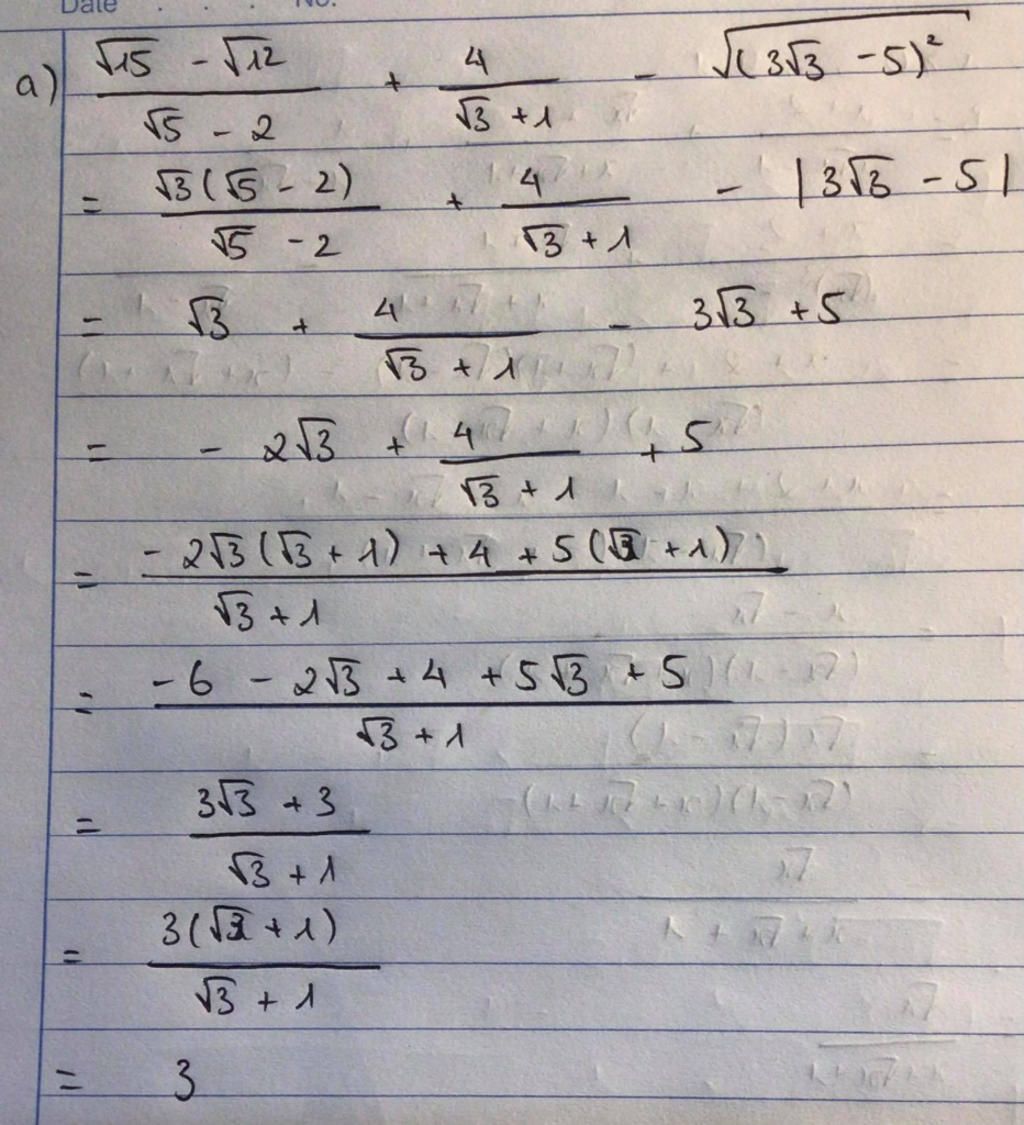 Date . . . No.
a) (√15 - √12)/(√5 - 2) + 4/(√3 + 1) - √((3√3 - 5)²)
= √3(√5 - 2)/(√5 - 2) + 4/(√3 + 1) - |3√3 - 5|
= √3 + 4/(√3 + 1) - 3√3 + 5
= - 2√3 + 4/(√3 + 1) + 5
= (- 2√3(√3 + 1) + 4 + 5(√3 + 1))/(√3 + 1)
= (- 6 - 2√3 + 4 + 5√3 + 5)/(√3 + 1)
= (3√3 + 3)/(√3 + 1)
= 3(√3 + 1)/(√3 + 1)
= 3